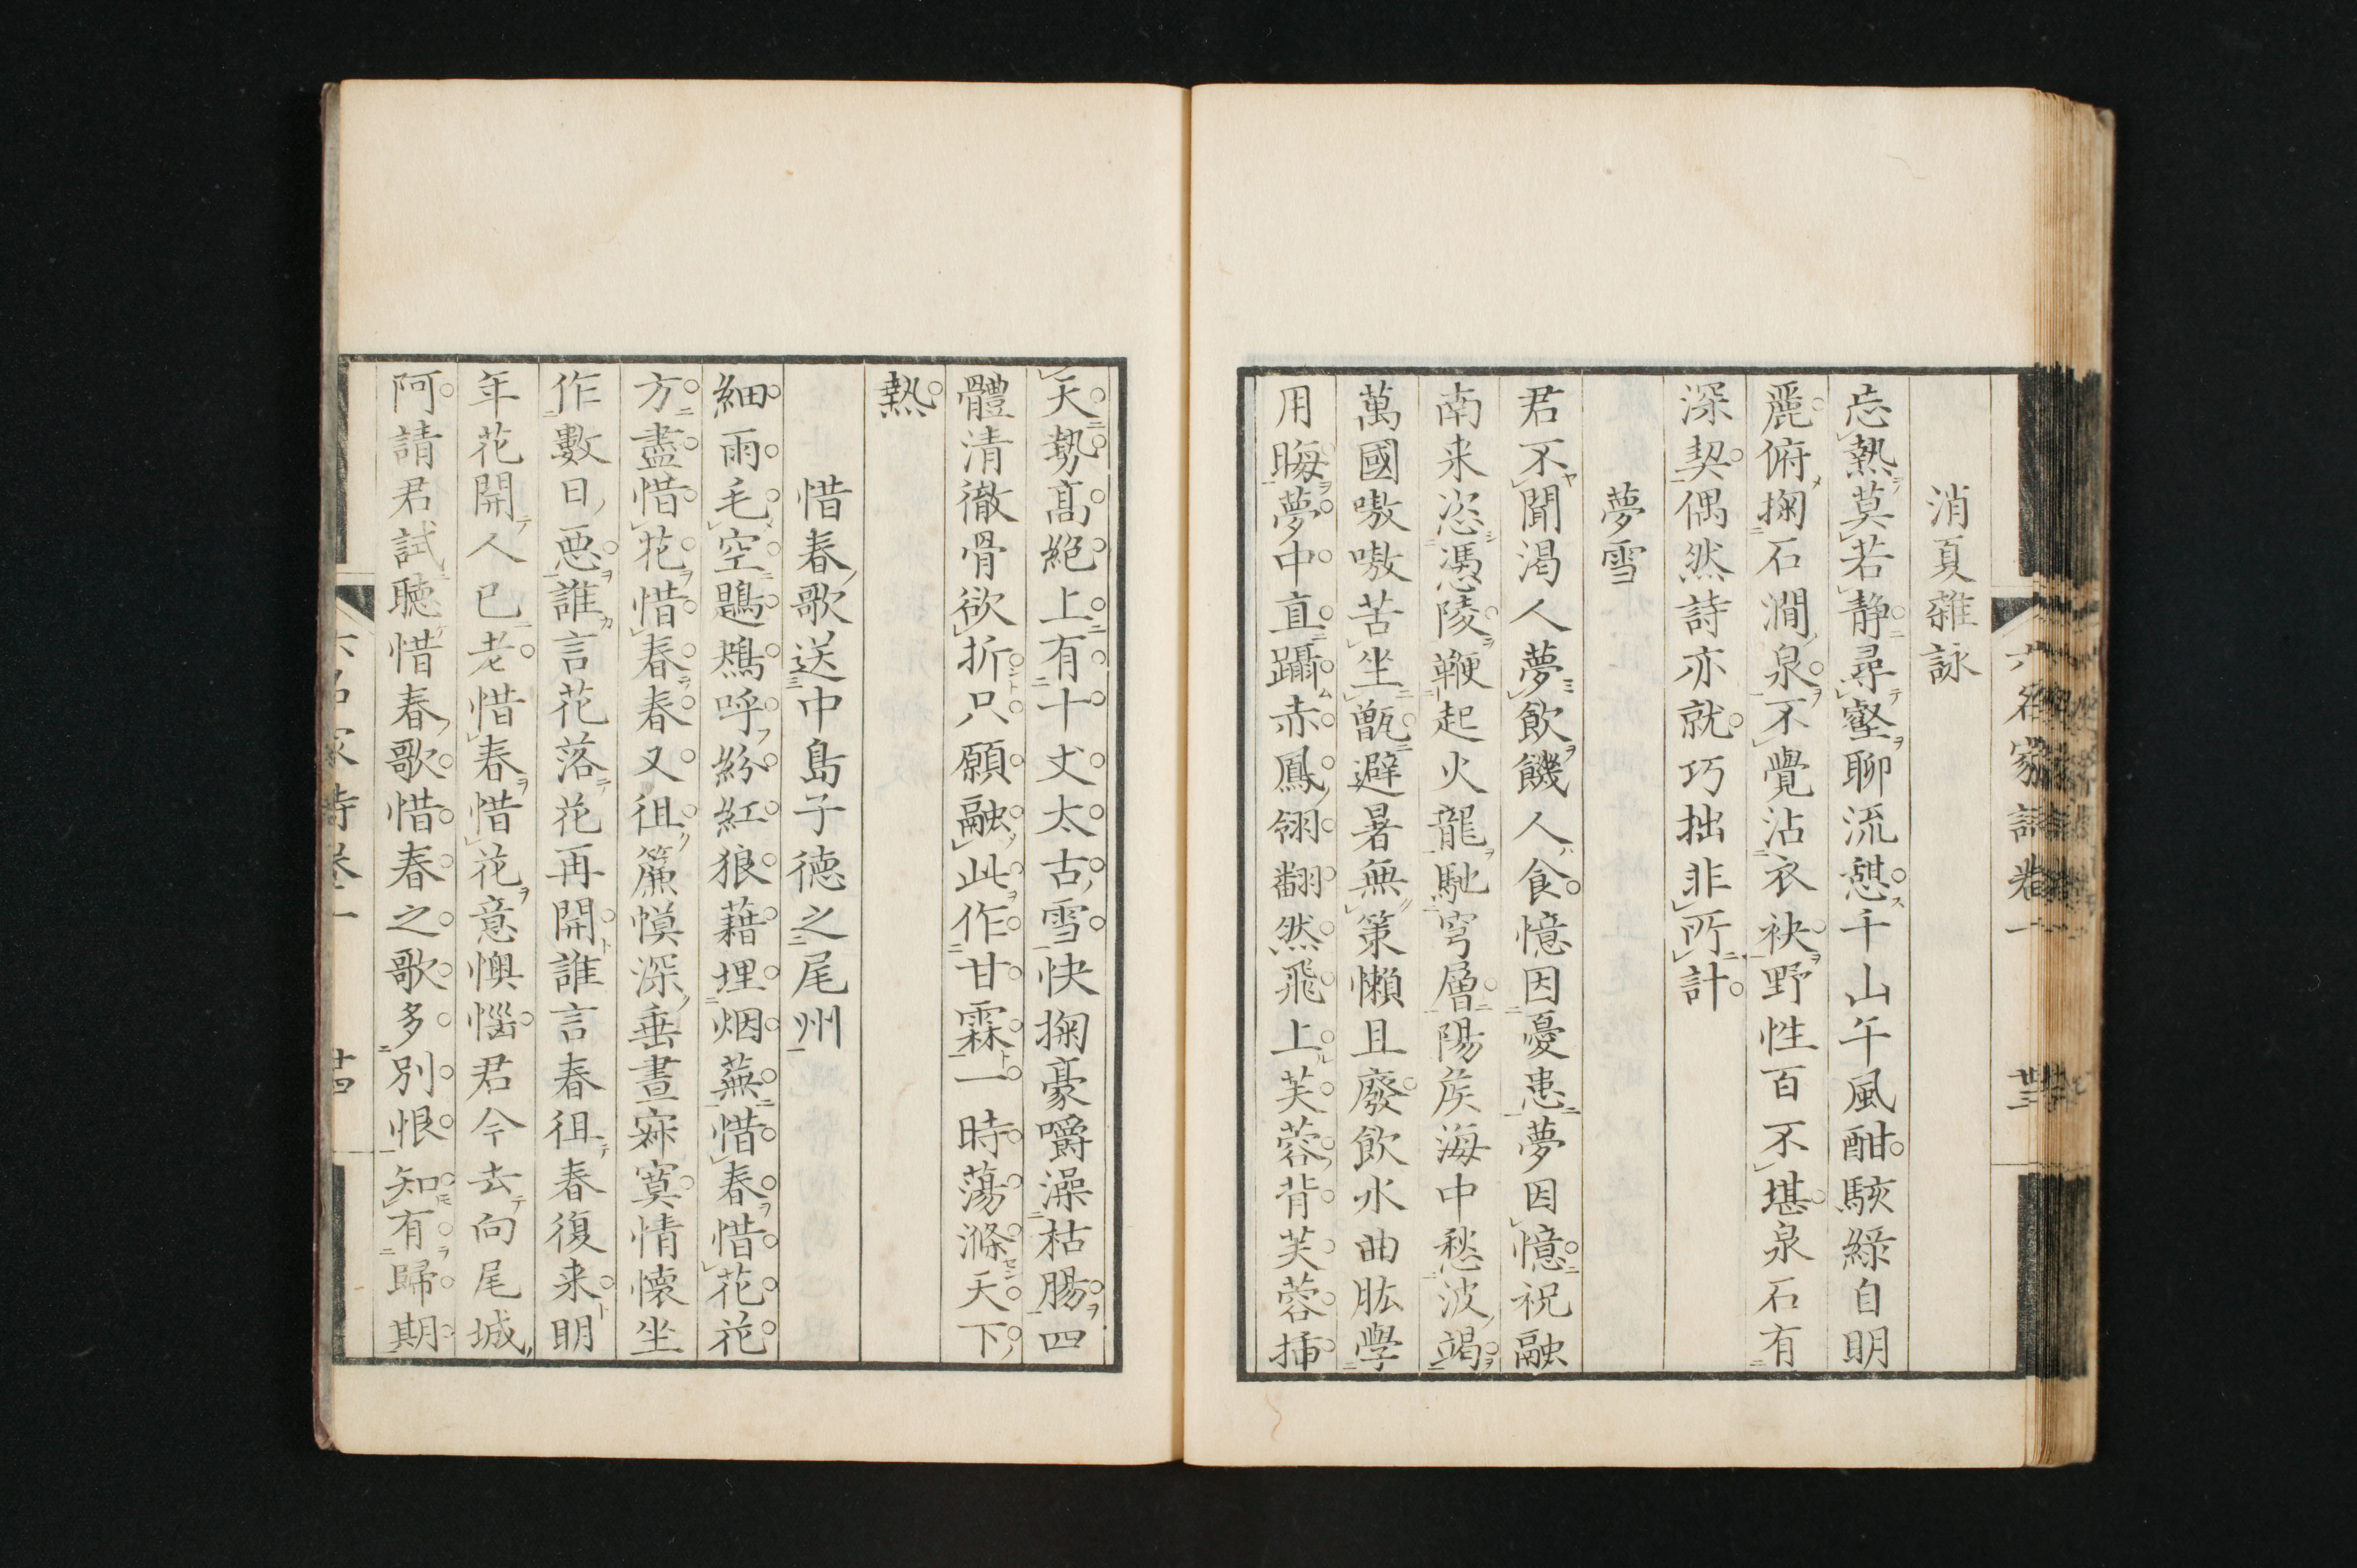 消夏雜詠
忘熱莫若静尋壑聊流憩千山午風酣駭綠自明
麗俯掬石澗泉不覺沾衣袂野性百不堪泉石有
深契偶然詩亦就巧拙非所計
夢雪
君不聞渴人夢飲饑人食憶因憂患夢因憶祝融
南来恣憑陵鞭起火龍馳穹層陽侯海中愁波竭
萬國嗷嗷苦坐甑避暑無策懶且廢飲水曲肱學
用晦夢中直躡赤鳳翎翻然飛上芙蓉背芙蓉插
天勢高絕上有十丈太古雪快掬豪嚼澡枯腸四
體清徹骨欲折只願融此作甘霖一時蕩滌天下
熱
惜春歌送中島子德之尾州
細雨毛空鶗鴂呼紛紅狼藉埋烟蕪惜春惜花花
方盡惜花惜春春又徂簾幙深垂晝寂寞情懷坐
作數日惡誰言花落花再開誰言春徂春復来明
年花開人已老惜春惜花意懊惱君今去向尾城
阿請君試聽惜春歌惜春之歌多別恨知有歸期
六名家詩卷一 廿三
六名家詩卷一 廿四